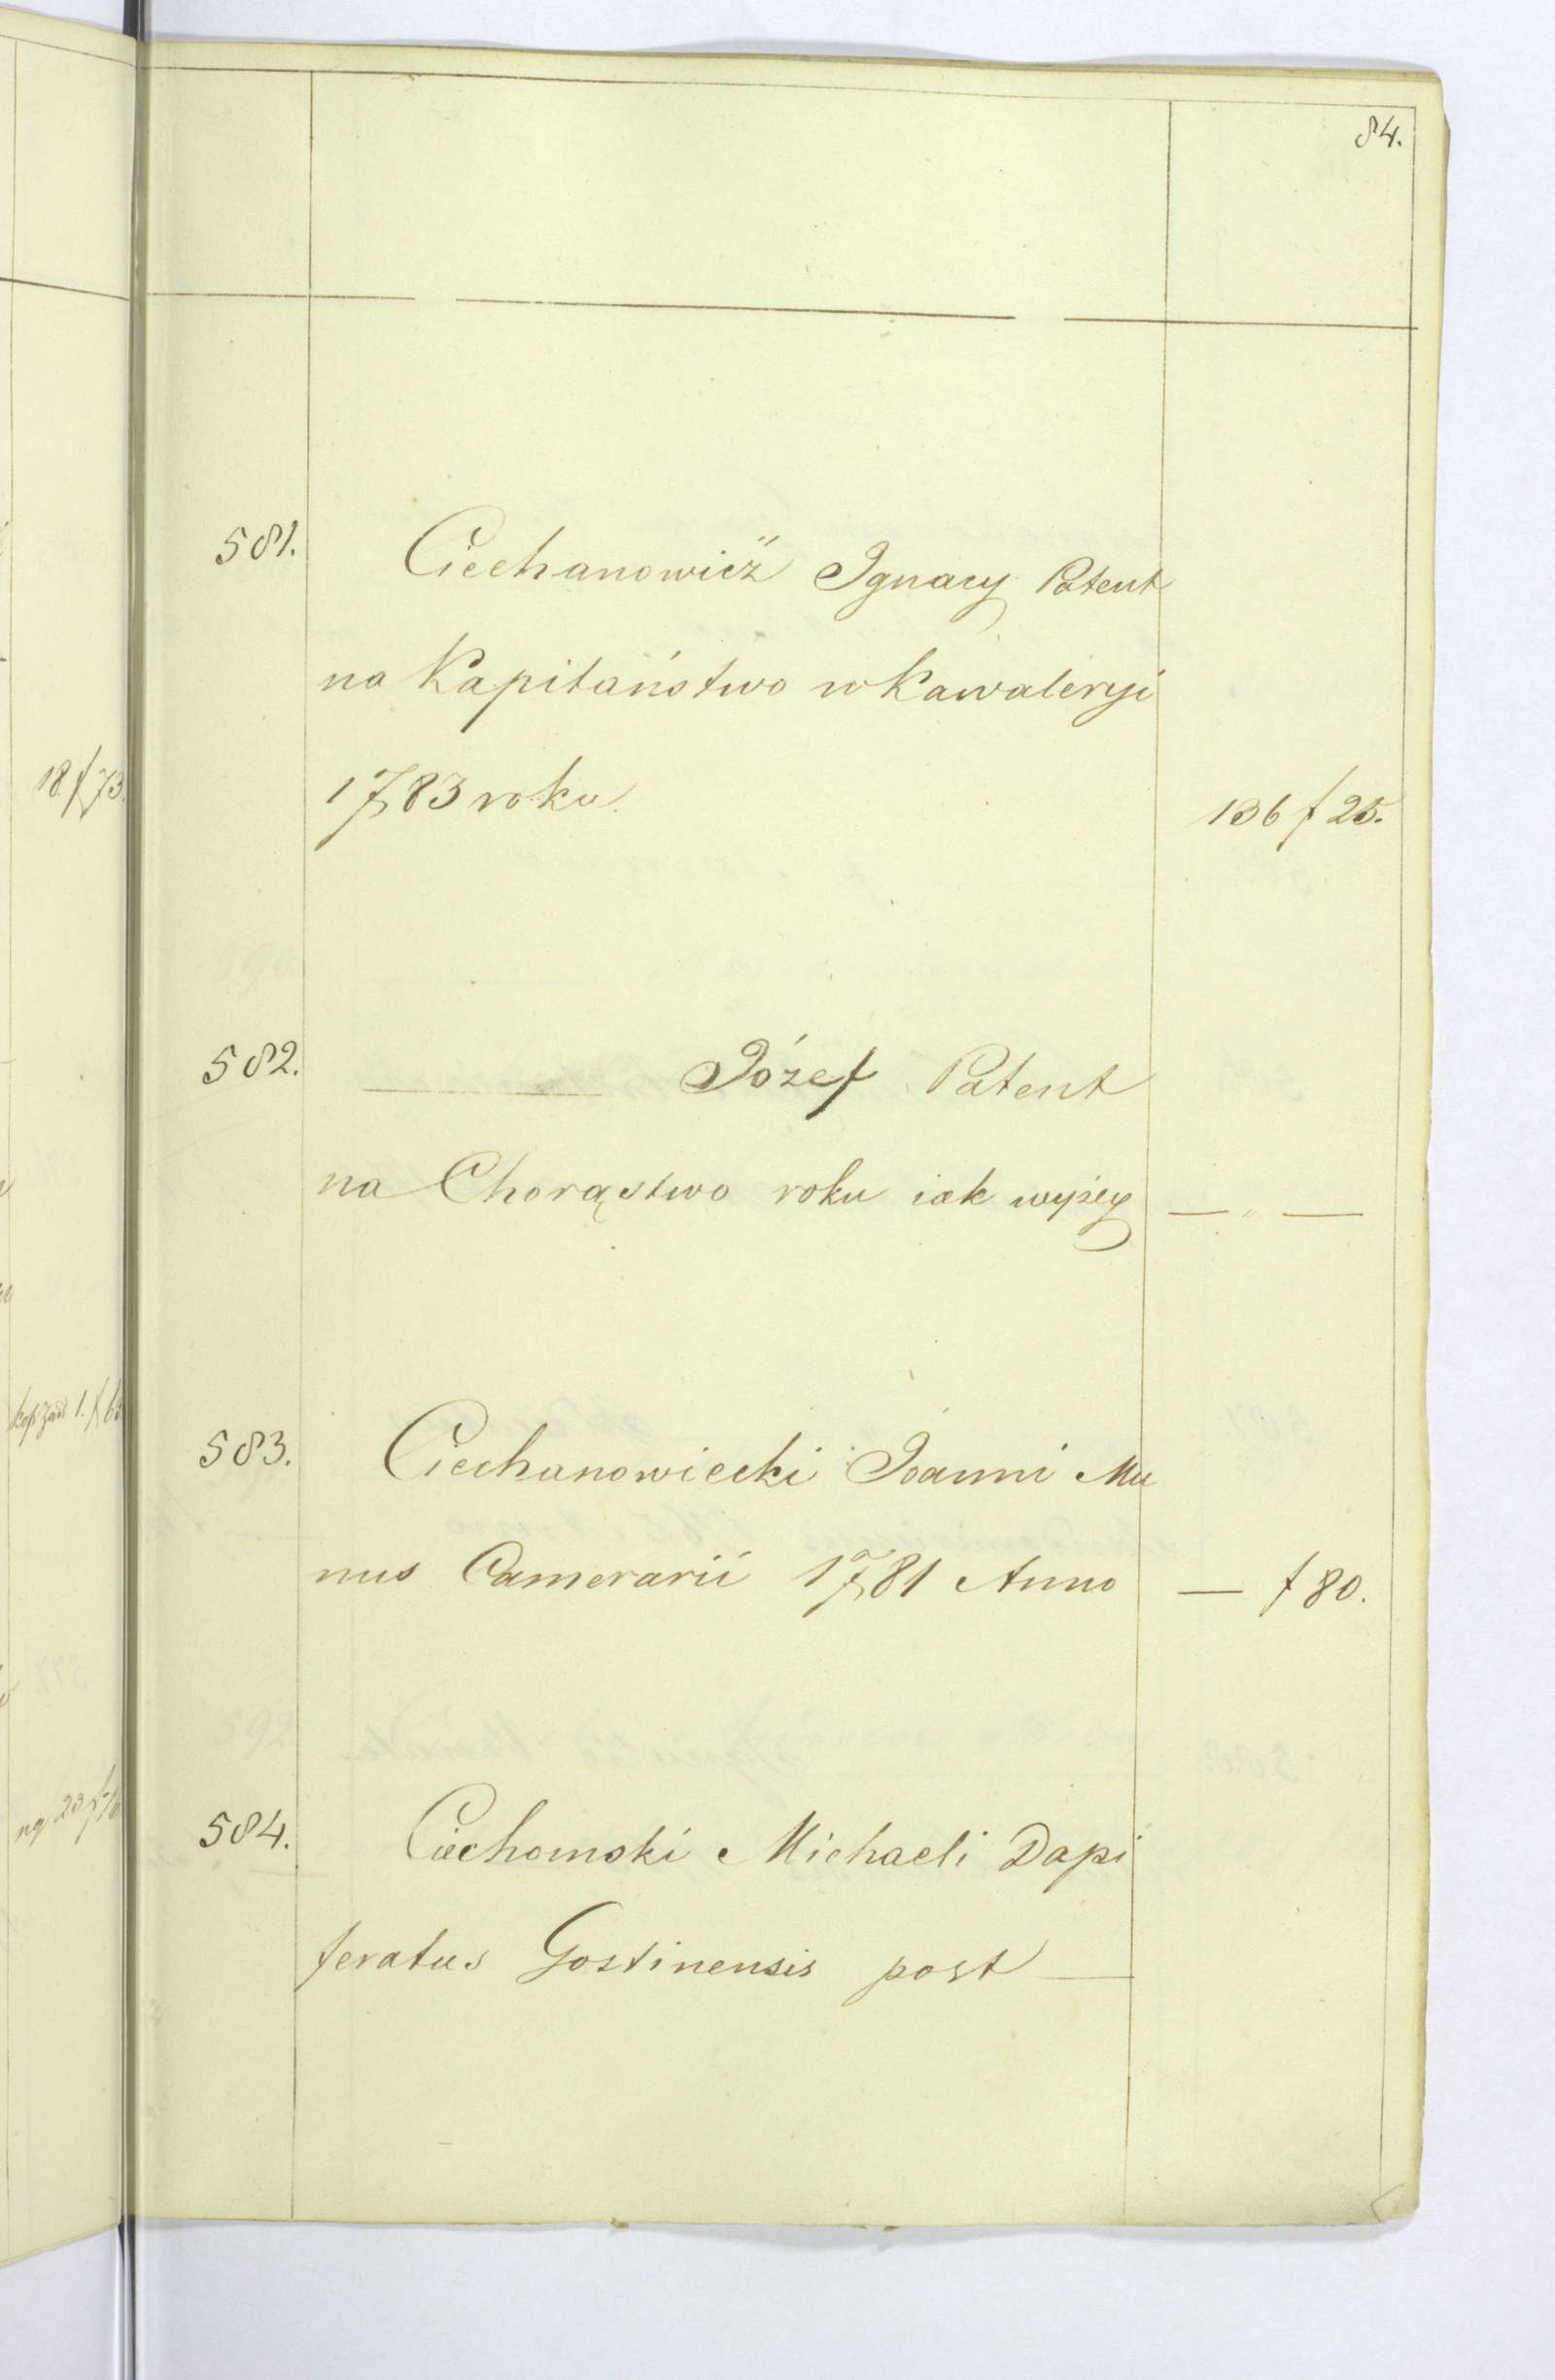 84.
581. Ciechanowicz Ignacy Patent
na Kapitaństwo w Kawaleryi
1783 roku. 136 f 25.
582. — Józef Patent
na Chorąstwo roku iak wyżey — " —
583. Ciechanowiecki Joanni Mu
nus Camerarii 1781 Anno — f 80.
584. Ciechomski Michaeli Dapi
feratus Gostinensis post —
18 f 73.